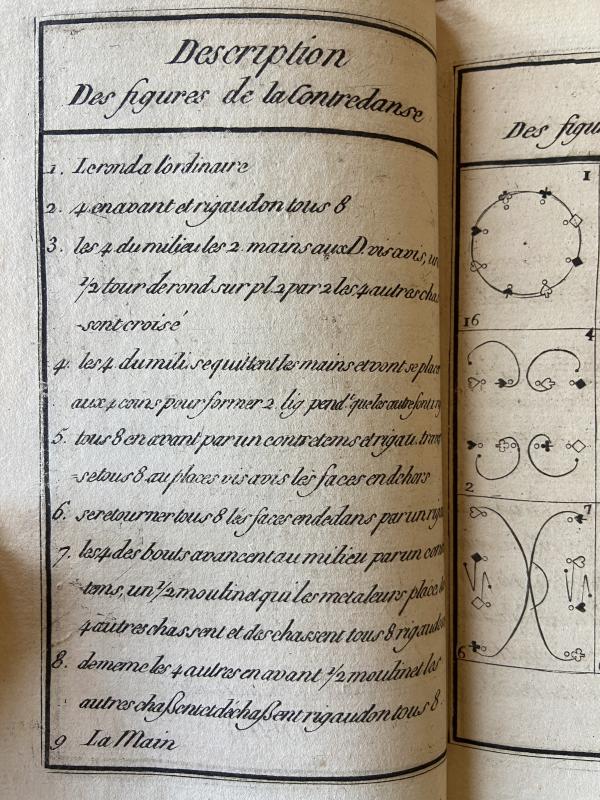 Description
Des figures de la Contredanse
1. Le rond a l'ordinaire
2. 4 en avant et rigaudon tous 8
3. les 4 du milieu les 2 mains aux D. vis avis,
1/2 tour de rond sur pl. 2 par 2 les 4 autres
-sont croisé
4. les 4. du mili. se quittent les mains et vont se place
aux 4 coins pour former 2. lig. pend.t que les autre font
5. tous 8 en avant par un contretems et rigau.
-se tous 8. au places vis avis les faces en dehors
6. se retourner tous 8 les faces en dedans par un
7. les 4 des bouts avancent au milieu par un
-tems, un 1/2 moulinet qui les met a leurs place
4 autres chassent et dechassent tous 8
8. de meme les 4 autres en avant 1/2 moulinet les
autres chaßent et déchaßent rigaudon tous 8.
9 La Main
Des
1
16
4
2
7
6